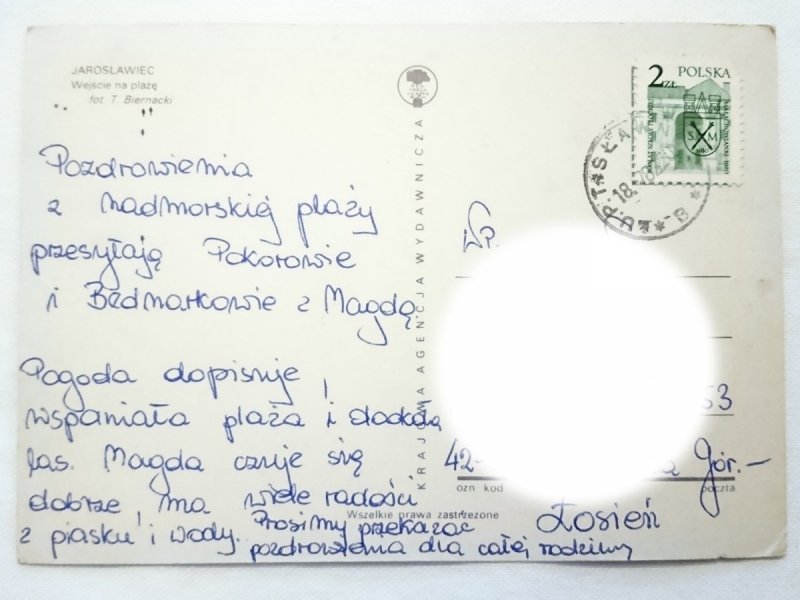 JAROSŁAWIEC
Wejście na plażę
fot. T. Biernacki
Pozdrowienia
z nadmorskiej plaży
przesyłają Pokorowie
i Bednarkowie z Magdą.
Pogoda dopisuje,
wspaniała plaża i dookoła
las. Magda czuje się
dobrze, ma wiele radości
z piasku i wody. Prosimy przekazać
pozdrowienia dla całej rodziny
KRAJOWA AGENCJA WYDAWNICZA
Wszelkie prawa zastrzeżone
2 ZŁ POLSKA
S M
18
B
WP.
53
42-
Gór.-
ozn. kod
poczta
Łosień